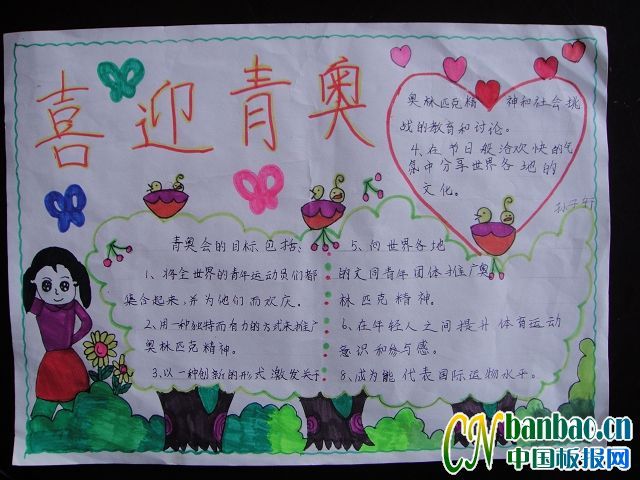 喜迎青奥
青奥会的目标包括:
1、将全世界的青年运动员们都
集合起来,并为他们而欢庆。
2、用一种独特而有力的方式来推广
奥林匹克精神。
3、以一种创新的形式激发关于
奥林匹克精神和社会挑
战的教育和讨论。
4、在节日般洽欢快的气
氛中分享世界各地的
文化。
5、向世界各地
的文同青年团体推广奥
林匹克精神。
6、在年轻人之间提升体育运动
意识和参与感。
8、成为能代表国际运物水平。
CNbanbao.cn
中国板报网